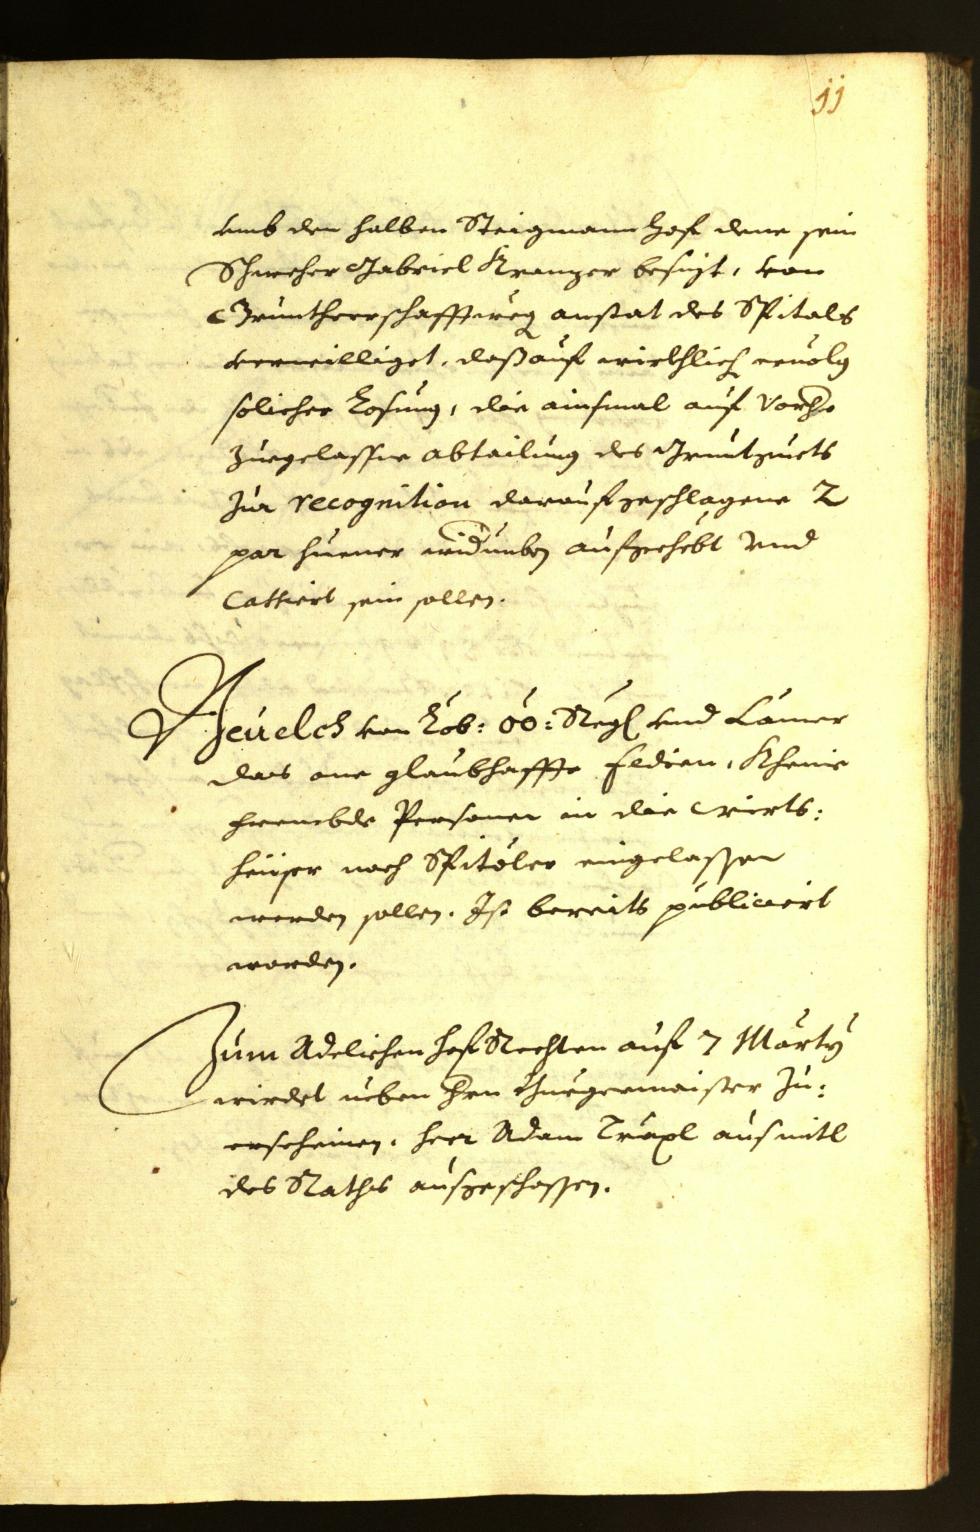 11
umb den halben Steigmann Hof dene sein
Schweher Gabriel Kranzer besizt, von
Gruntherrschafftweg anstat des Spitals
verwilliget, daß auf wirkhlich ervolg
solicher Losung, die ainsmal auf vorhe
zuegelassne abtailung des Gruntguets
zur recognition darauf geschlagene 2
par huener widumben aufgehebt und
Cassiert sein sollen.
Bevelch von Lob: OÖ: Regl und Camer
das one glaubhaffte Fedien, Kheine
frembde Personen in die Wierts:
heüser noch Spitäler eingelassen
werden sollen. Ist bereits publiciert
worden.
Zum Adelichen Hof Rechten auf 7 Marty
wirdet neben Hrn Burgermaister zu:
erscheinen, Herr Adam Truxl aus mitl
des Raths ausgeschossen.